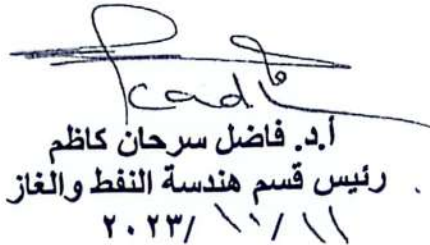 أ.د. فاضل سرحان كاظم
رئيس قسم هندسة النفط والغاز
٢٠٢٣/ ١١/ ١١